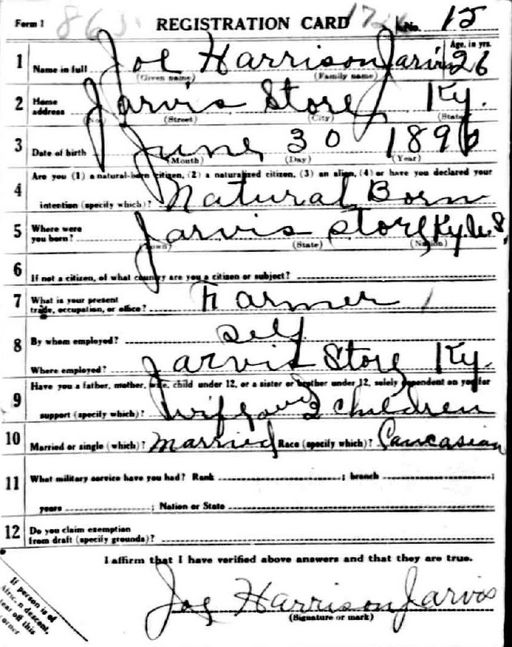 Form 1 REGISTRATION CARD No. 15
1 Name in full Joe Harrison Jarvis Age, in yrs. 26
(Given name) (Family name)
2 Home address Jarvis Store Ky.
(No.) (Street) (City) (State)
3 Date of birth June 30 1890
(Month) (Day) (Year)
4 Are you (1) a natural-born citizen, (2) a naturalized citizen, (3) an alien, (4) or have you declared your
intention (specify which)? Natural Born
5 Where were you born? Jarvis Store, Ky. U.S.
(Town) (State) (Nation)
6 If not a citizen, of what country are you a citizen or subject?
7 What is your present trade, occupation, or office? Farmer
8 By whom employed? Self
Where employed? Jarvis Store Ky.
9 Have you a father, mother, wife, child under 12, or a sister or brother under 12, solely dependent on you for
support (specify which)? Wife and 2 children
10 Married or single (which)? Married Race (specify which)? Caucasian
11 What military service have you had? Rank ; branch ;
years ; Nation or State
12 Do you claim exemption from draft (specify grounds)?
I affirm that I have verified above answers and that they are true.
Joe Harrison Jarvis
(Signature or mark)
If person is of
African descent,
tear off this
corner